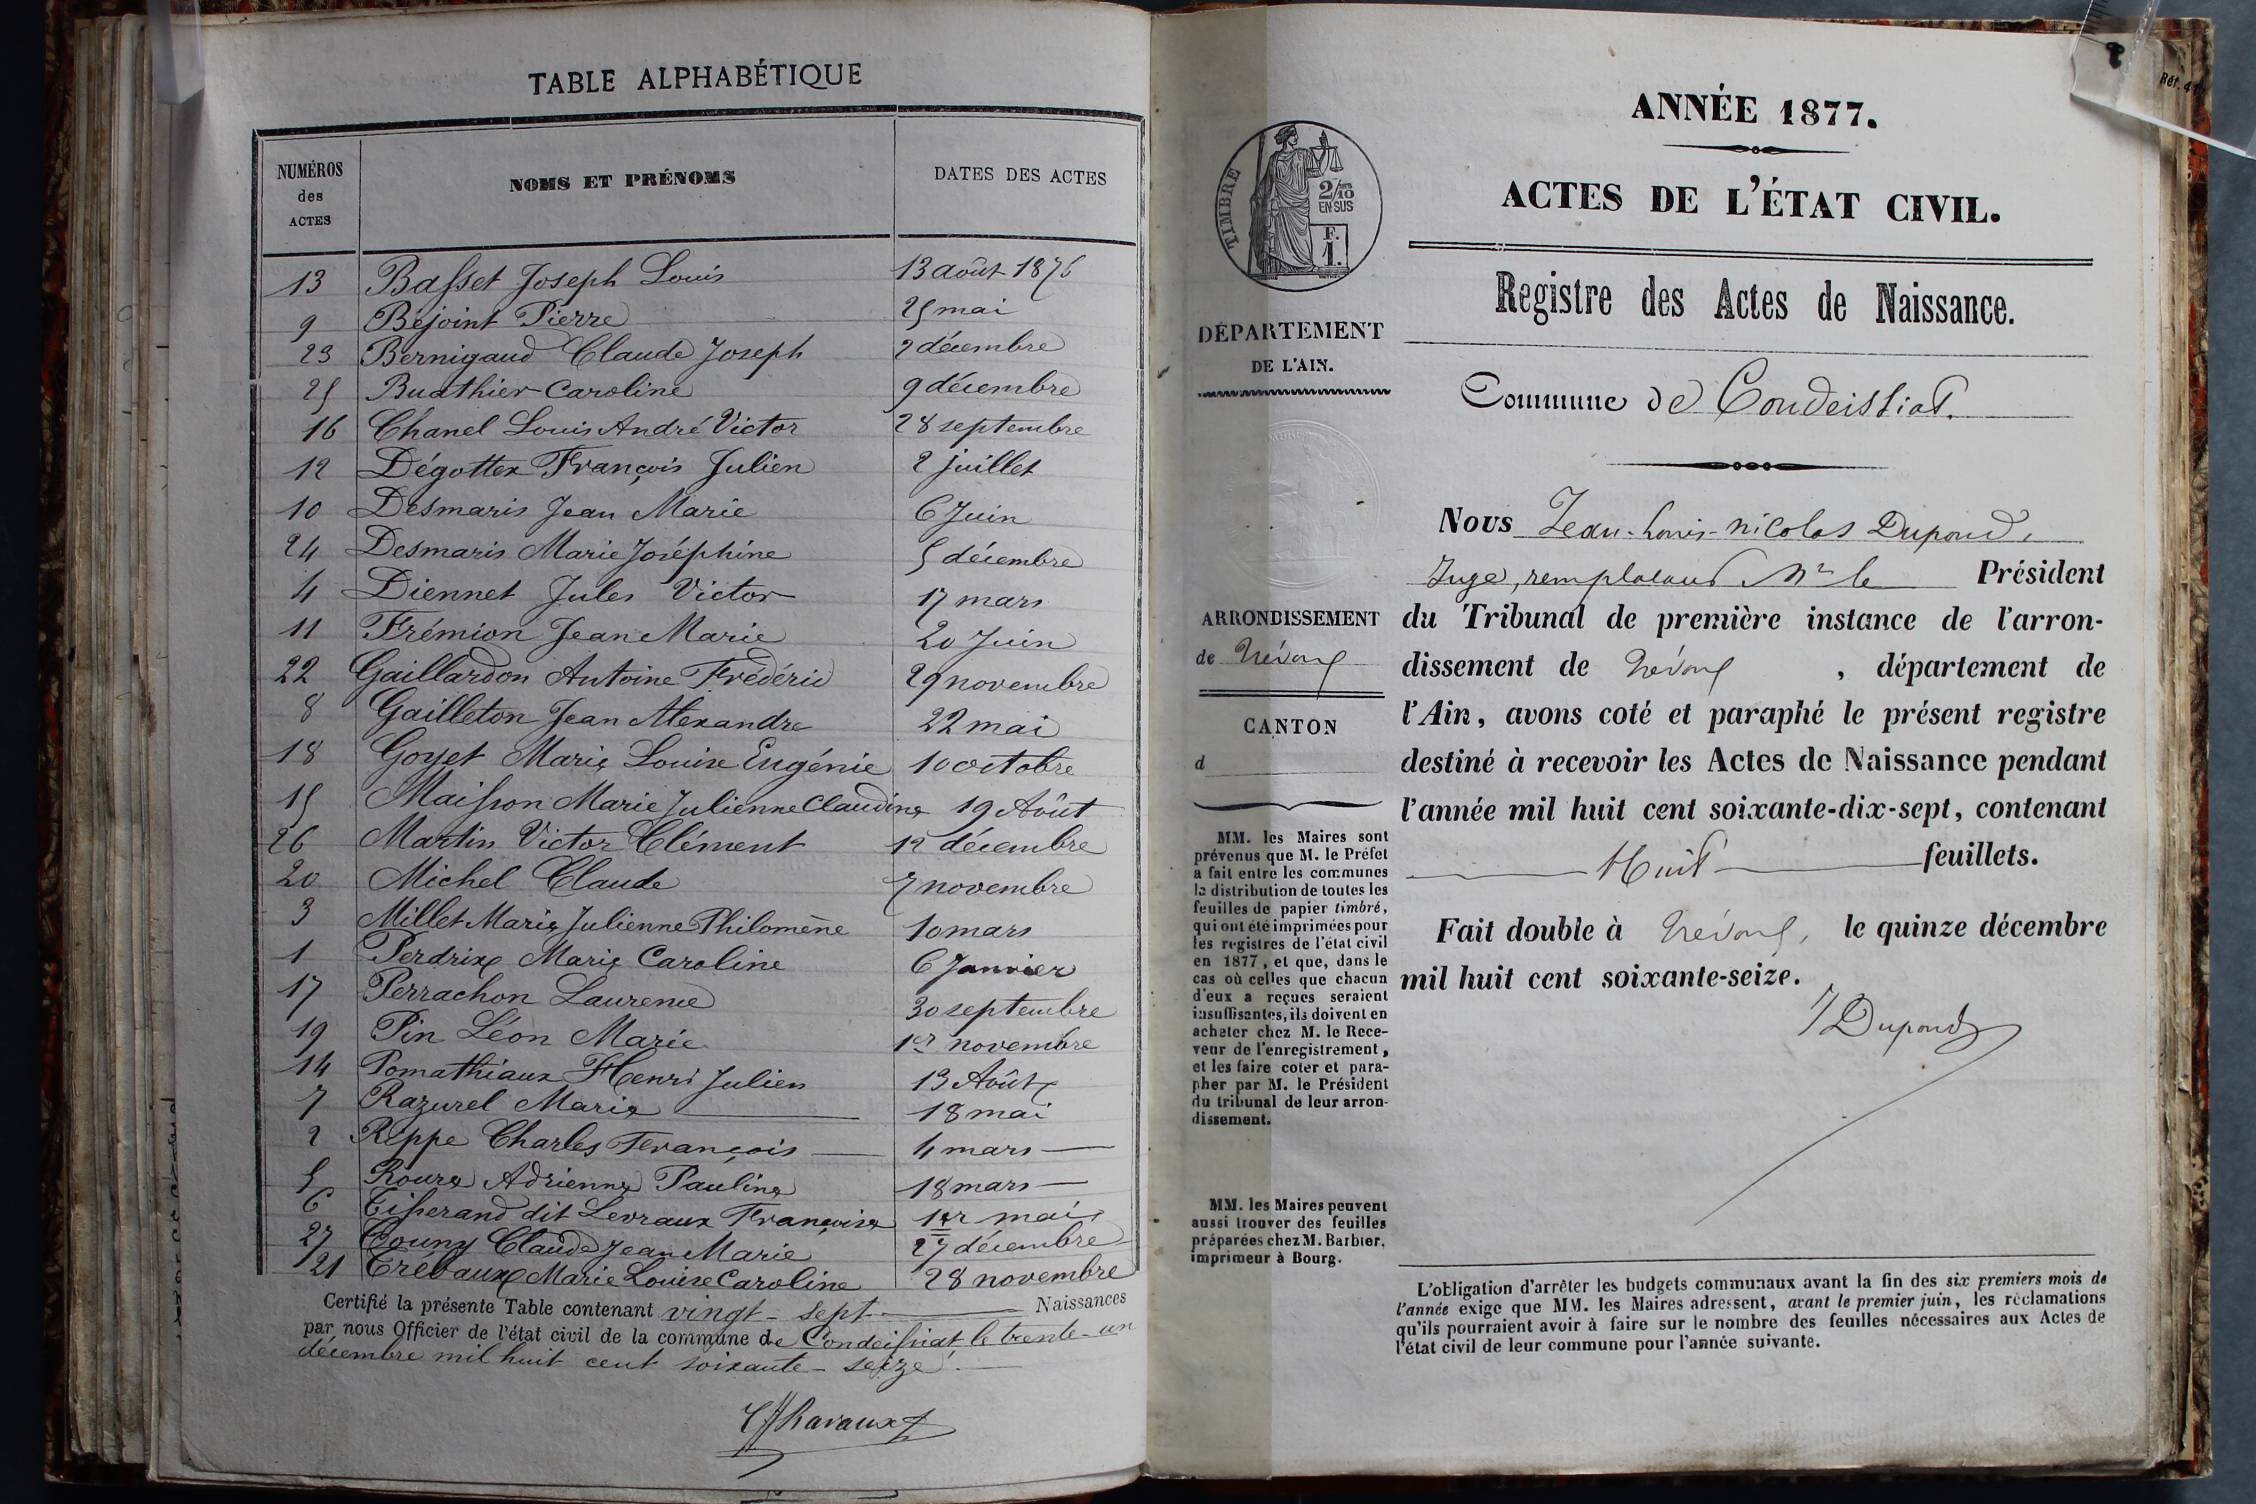 TABLE ALPHABÉTIQUE
NUMÉROS des ACTES NOMS ET PRÉNOMS DATES DES ACTES
13 Basset Joseph Louis 13 août 1876
9 Bejoint Pierre 25 mai
23 Bernigaud Claude Joseph 2 décembre
25 Buathier Caroline 9 décembre
16 Chanel Louis André Victor 28 septembre
12 Dégottex François Julien 2 juillet
10 Desmaris Jean Marie 6 Juin
24 Desmaris Marie Joséphine 5 décembre
4 Diennet Jules Victor 17 mars
11 Frémion Jean Marie 20 Juin
22 Gaillardon Antoine Frédéric 29 novembre
8 Gailleton Jean Alexandre 22 mai
18 Goyet Marie Louise Eugénie 10 octobre
15 Maisson Marie Julienne Claudine 19 Août
26 Martin Victor Clément 12 décembre
20 Michel Claude 7 novembre
3 Millet Marie Julienne Philomène 10 mars
1 Perdrix Marie Caroline 6 Janvier
17 Perrachon Laurence 30 septembre
19 Pin Léon Marie 1er novembre
14 Pomathiaux Henri Julien 13 Août
7 Razurel Marie 18 mai
2 Reppe Charles François 4 mars
5 Roure Adrienne Pauline 18 mars
6 Tisserand dit Levraux Françoise 1er mai
27 Touny Claude Jean Marie 27 décembre
21 Trébaux Marie Louise Caroline 28 novembre
Certifié la présente Table contenant vingt-sept Naissances
par nous Officier de l'état civil de la commune de Condeissiat, le trente-un
décembre mil huit cent soixante-seize.
Ravaux
ANNÉE 1877.
ACTES DE L'ÉTAT CIVIL.
Registre des Actes de Naissance.
Commune de Condeissiat.
TIMBRE
2/10
EN SUS
F.
1.
DÉPARTEMENT
DE L'AIN.
ARRONDISSEMENT
de Trévoux
CANTON
d
MM. les Maires sont
prévenus que M. le Préfet
a fait entre les communes
la distribution de toutes les
feuilles de papier timbré,
qui ont été imprimées pour
les registres de l'état civil
en 1877, et que, dans le
cas où celles que chacun
d'eux a reçues seraient
insuffisantes, ils doivent en
acheter chez M. le Rece-
veur de l'enregistrement,
et les faire coter et para-
pher par M. le Président
du tribunal de leur arron-
dissement.
MM. les Maires peuvent
aussi trouver des feuilles
préparées chez M. Barbier,
imprimeur à Bourg.
Nous Jean-Louis-Nicolas Dupond,
Juge, remplaçant Mr le Président
du Tribunal de première instance de l'arron-
dissement de Trévoux, département de
l'Ain, avons coté et paraphé le présent registre
destiné à recevoir les Actes de Naissance pendant
l'année mil huit cent soixante-dix-sept, contenant
Huit feuillets.
Fait double à Trévoux, le quinze décembre
mil huit cent soixante-seize.
Dupond
L'obligation d'arrêter les budgets communaux avant la fin des six premiers mois de
l'année exige que MM. les Maires adressent, avant le premier juin, les réclamations
qu'ils pourraient avoir à faire sur le nombre des feuilles nécessaires aux Actes de
l'état civil de leur commune pour l'année suivante.